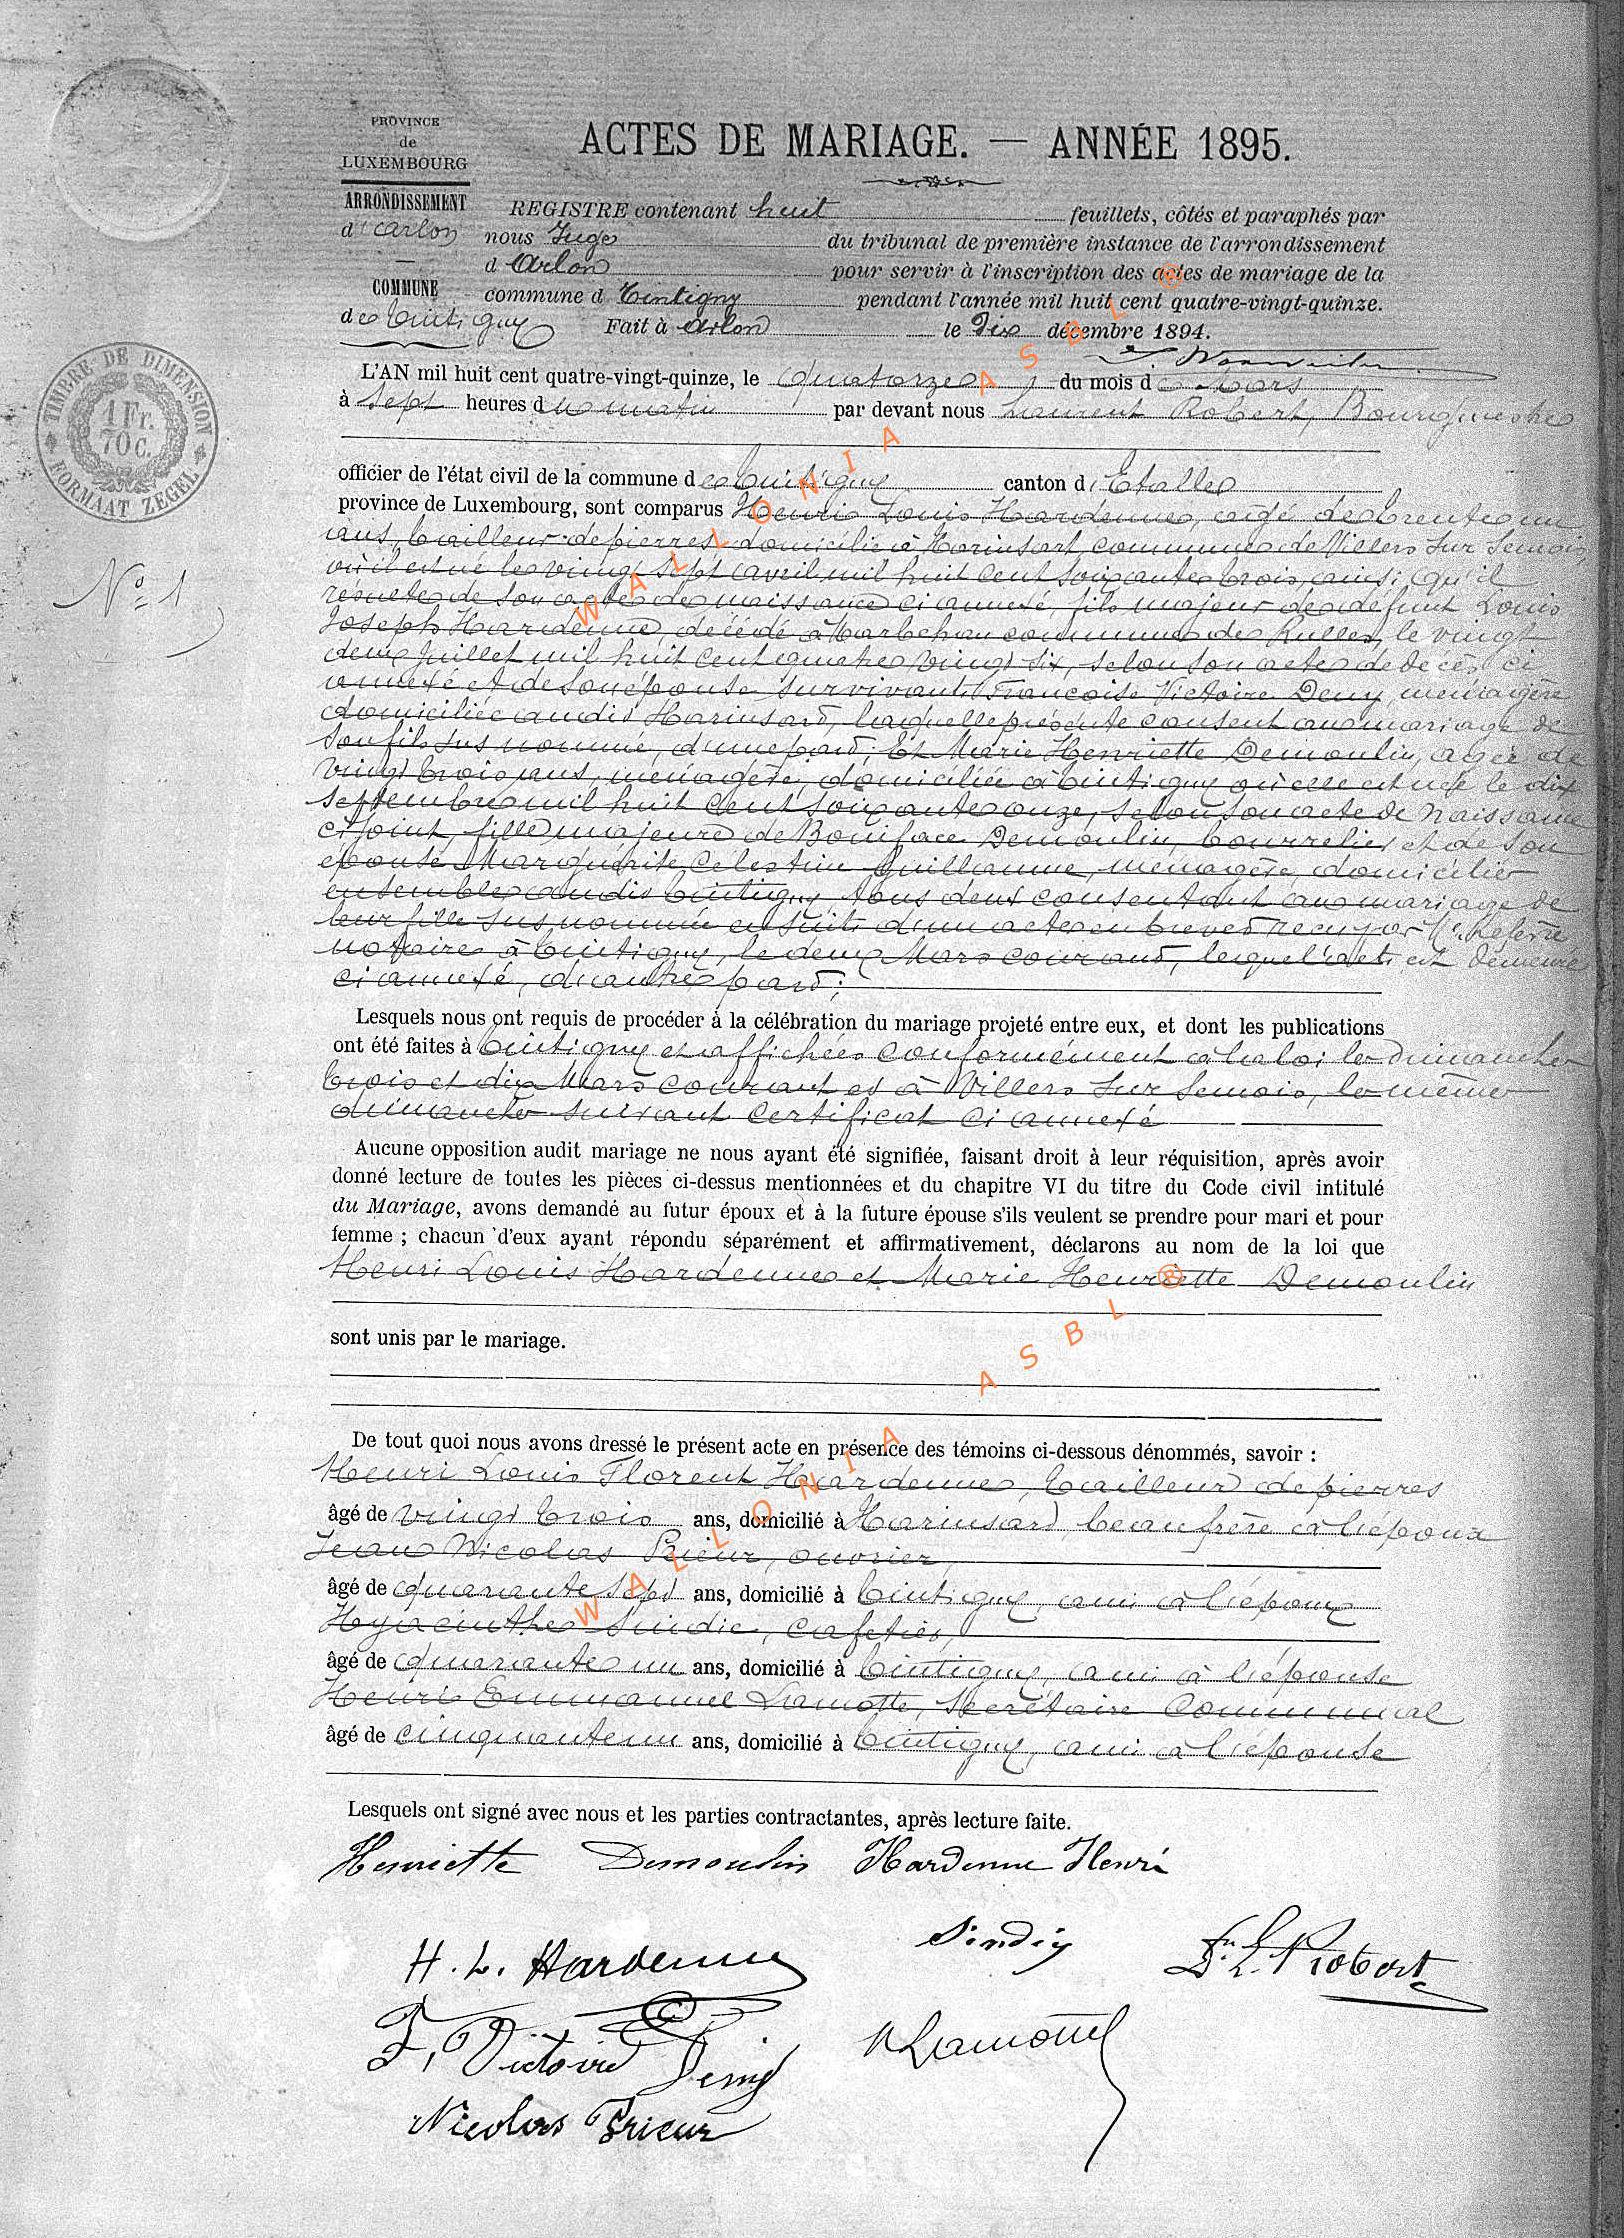 PROVINCE
de
LUXEMBOURG
ARRONDISSEMENT
d'Arlon
COMMUNE
de Tintigny
TIMBRE DE DIMENSION
1 Fr.
70 C.
FORMAAT ZEGEL
No 1
ACTES DE MARIAGE. — ANNÉE 1895.
REGISTRE contenant huit feuillets, côtés et paraphés par
nous Juge du tribunal de première instance de l'arrondissement
d'Arlon pour servir à l'inscription des actes de mariage de la
commune d Tintigny pendant l'année mil huit cent quatre-vingt-quinze.
Fait à Arlon le Dix décembre 1894.
L'AN mil huit cent quatre-vingt-quinze, le quatorze du mois de Mars
à sept heures du matin par devant nous Laurent Robert, Bourgmestre
officier de l'état civil de la commune de Tintigny canton d'Etalle
province de Luxembourg, sont comparus Henri Louis Hardenne, âgé de trente un
ans, tailleur de pierres, domicilié à Harinsart, commune de Villers sur Semois
où il est né le vingt sept avril mil huit cent soixante trois, ainsi qu'il
résulte de son acte de naissance ci annexé, fils majeur de défunt Louis
Joseph Hardenne, décédé à Marbehan commune de Rulles, le vingt
deux juillet mil huit cent quatre vingt six, selon son acte de décès ci
annexé et de son épouse survivante Françoise Victoire Deny, ménagère
domiciliée audit Harinsard, laquelle présente consent au mariage de
son fils sus nommé, d'une part; Et Marie Henriette Demoulin, agée de
vingt trois ans, ménagère, domiciliée à Tintigny où elle est née le dix
septembre mil huit cent soixante onze, selon son acte de naissance
ci joint, fille majeure de Boniface Demoulin, bourrelier et de son
épouse Marguérite Célestine Guillaume, ménagère, domiciliés
ensemble audit Tintigny, tous deux consentant au mariage de
leur fille sus nommée en suite d'un acte en brevet reçu par Me
notaire à Tintigny, le deux Mars courant, lequel acte est demeuré
ci annexé, d'autre part;
Lesquels nous ont requis de procéder à la célébration du mariage projeté entre eux, et dont les publications
ont été faites à Tintigny et affichées conformément à la loi les dimanches
trois et dix Mars courant et à Villers sur Semois, le même
dimanche suivant certificat ci annexé
Aucune opposition audit mariage ne nous ayant été signifiée, faisant droit à leur réquisition, après avoir
donné lecture de toutes les pièces ci-dessus mentionnées et du chapitre VI du titre du Code civil intitulé
du Mariage, avons demandé au futur époux et à la future épouse s'ils veulent se prendre pour mari et pour
femme ; chacun d'eux ayant répondu séparément et affirmativement, déclarons au nom de la loi que
Henri Louis Hardenne et Marie Henriette Demoulin
sont unis par le mariage.
De tout quoi nous avons dressé le présent acte en présence des témoins ci-dessous dénommés, savoir :
Henri Louis Florent Hardenne, tailleur de pierres
âgé de vingt trois ans, domicilié à Harinsard, beaufrère à l'époux
Jean Nicolas Prieur, ouvrier,
âgé de quarante sept ans, domicilié à Tintigny, ami à l'époux
Hyacinthe Sindic, cafetier,
âgé de quarante un ans, domicilié à Tintigny, ami à l'épouse
Henri Emmanuel Lamotte, Secrétaire Communal
âgé de cinquante un ans, domicilié à Tintigny, ami à l'épouse
Lesquels ont signé avec nous et les parties contractantes, après lecture faite.
Henriette Demoulin Hardenne Henri
H. L. Hardenne Sindic Ln. L. Robert
F. Victoire Deny Lamotte
Nicolas Prieur
WALLONIA ASBL ®
WALLONIA ASBL ®